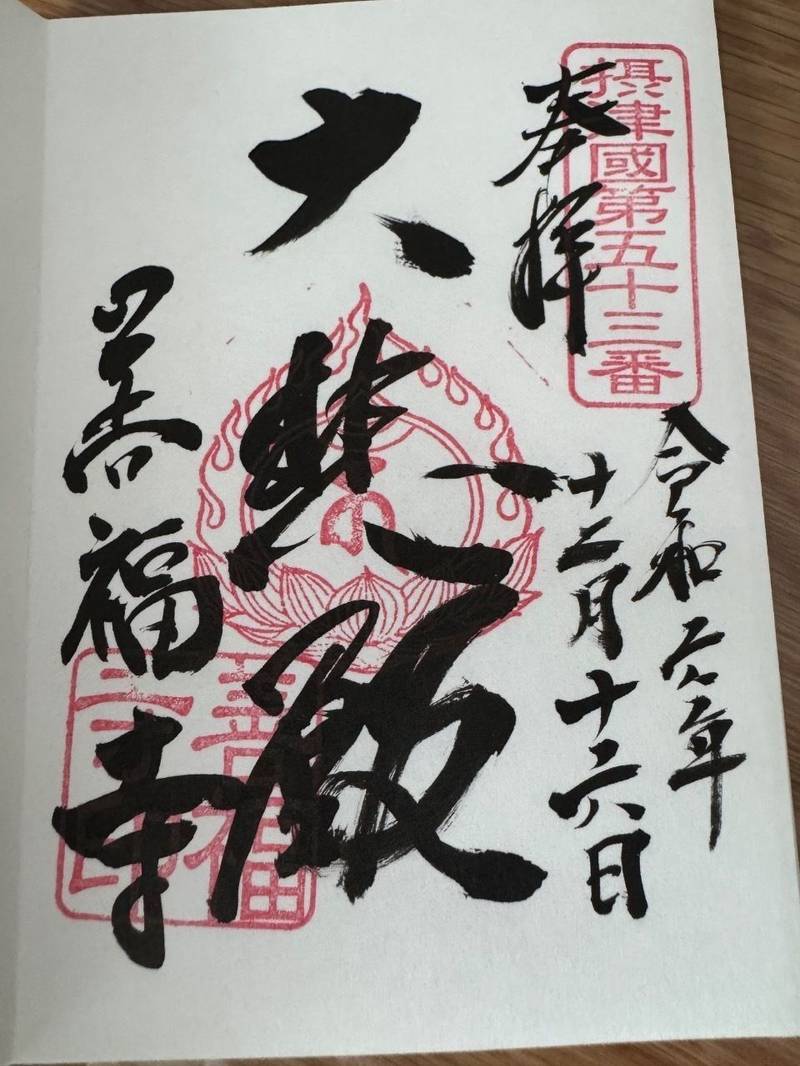 摂津國第五十三番
奉拝
令和六年
十二月十六日
大悲殿
善福寺
善福
寺印